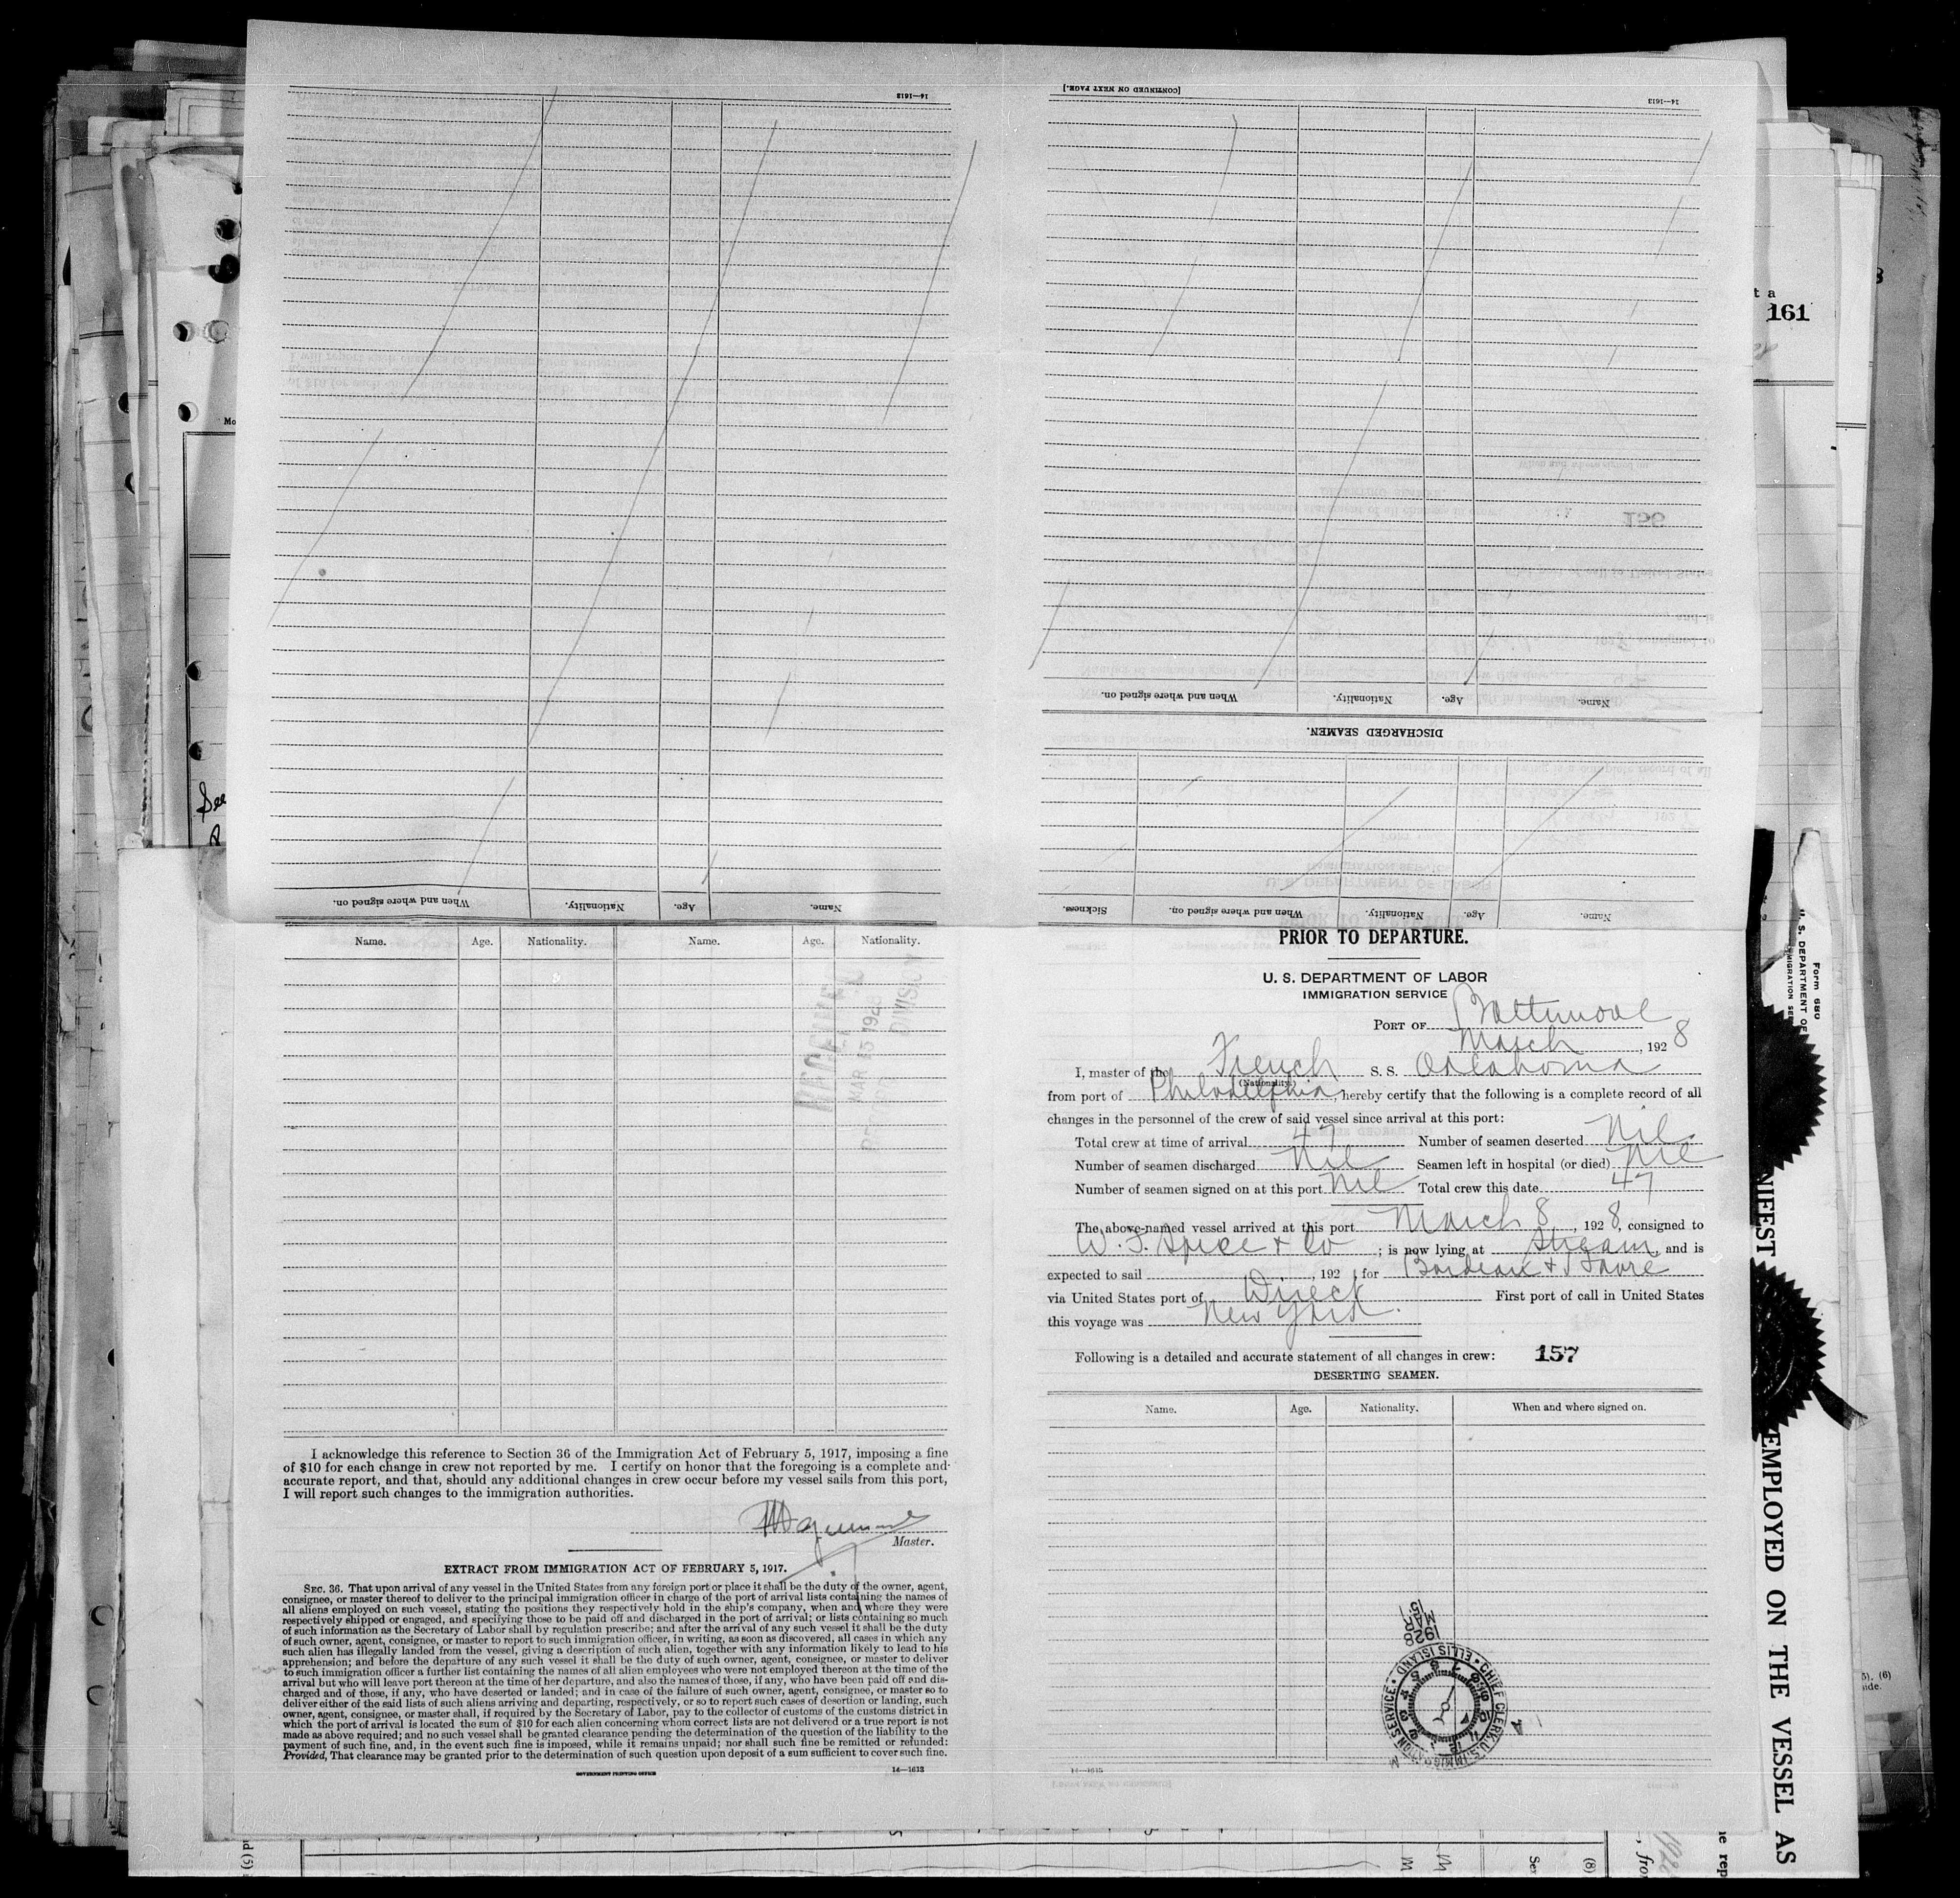 14—1613
[CONTINUED ON NEXT PAGE.]
14—1613
When and where signed on.
Nationality.
Age.
Name.
DISCHARGED SEAMEN.
When and where signed on.
Nationality.
Age.
Name.
Sickness.
When and where signed on.
Nationality.
Age.
Name.
Name. Age. Nationality. Name. Age. Nationality.
RECEIVED
MAR 15 1928
DIVISION
I acknowledge this reference to Section 36 of the Immigration Act of February 5, 1917, imposing a fine
of $10 for each change in crew not reported by me. I certify on honor that the foregoing is a complete and
accurate report, and that, should any additional changes in crew occur before my vessel sails from this port,
I will report such changes to the immigration authorities.
Master.
EXTRACT FROM IMMIGRATION ACT OF FEBRUARY 5, 1917.
SEC. 36. That upon arrival of any vessel in the United States from any foreign port or place it shall be the duty of the owner, agent,
consignee, or master thereof to deliver to the principal immigration officer in charge of the port of arrival lists containing the names of
all aliens employed on such vessel, stating the positions they respectively hold in the ship's company, when and where they were
respectively shipped or engaged, and specifying those to be paid off and discharged in the port of arrival; or lists containing so much
of such information as the Secretary of Labor shall by regulation prescribe; and after the arrival of any such vessel it shall be the duty
of such owner, agent, consignee, or master to report to such immigration officer, in writing, as soon as discovered, all cases in which any
such alien has illegally landed from the vessel, giving a description of such alien, together with any information likely to lead to his
apprehension; and before the departure of any such vessel it shall be the duty of such owner, agent, consignee, or master to deliver
to such immigration officer a further list containing the names of all alien employees who were not employed thereon at the time of the
arrival but who will leave port thereon at the time of her departure, and also the names of those, if any, who have been paid off and dis-
charged and of those, if any, who have deserted or landed; and in case of the failure of such owner, agent, consignee, or master so to
deliver either of the said lists of such aliens arriving and departing, respectively, or so to report such cases of desertion or landing, such
owner, agent, consignee, or master shall, if required by the Secretary of Labor, pay to the collector of customs of the customs district in
which the port of arrival is located the sum of $10 for each alien concerning whom correct lists are not delivered or a true report is not
made as above required; and no such vessel shall be granted clearance pending the determination of the question of the liability to the
payment of such fine, and, in the event such fine is imposed, while it remains unpaid; nor shall such fine be remitted or refunded:
Provided, That clearance may be granted prior to the determination of such question upon deposit of a sum sufficient to cover such fine.
GOVERNMENT PRINTING OFFICE
14—1613
PRIOR TO DEPARTURE.
U. S. DEPARTMENT OF LABOR
IMMIGRATION SERVICE
PORT OF Baltimore
March, 1928
I, master of the French S. S. Oklahoma
(Nationality.)
from port of Philadelphia, hereby certify that the following is a complete record of all
changes in the personnel of the crew of said vessel since arrival at this port:
Total crew at time of arrival 47 Number of seamen deserted Nil
Number of seamen discharged Nil Seamen left in hospital (or died) Nil
Number of seamen signed on at this port Nil Total crew this date 47
The above-named vessel arrived at this port March 8, 1928, consigned to
W. F. Spice & Co; is now lying at Stream, and is
expected to sail , 192 , for Bordeaux & Havre
via United States port of Direct First port of call in United States
this voyage was New York.
Following is a detailed and accurate statement of all changes in crew: 157
DESERTING SEAMEN.
Name. Age. Nationality. When and where signed on.
1928
MAR
15
CHIEF CLERK, U.S. IMMIGRATION SERVICE • ELLIS ISLAND •
14—1613
161
See
Form 680
U. S. DEPARTMENT OF
IMMIGRATION SER
NIFEST
EMPLOYED ON THE VESSEL AS